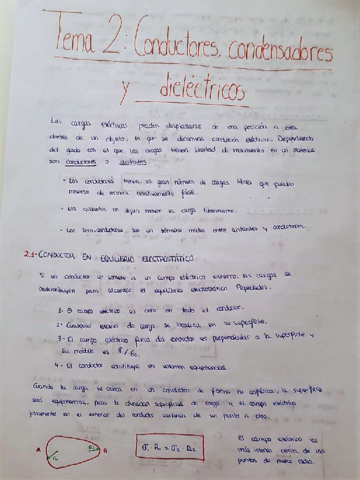 Tema 2: Conductores, condensadores
y dieléctricos
Las cargas eléctricas pueden desplazarse de una posición a otra
dentro de un objeto, lo que se denomina conducción eléctrica. Dependiendo
del grado con el que las cargas tienen libertad de movimiento en un material
son conductores o aislantes.
- Los conductores tienen un gran número de cargas libres que pueden
moverse de manera relativamente fácil.
- Los aislantes no dejan mover la carga libremente.
- Los semiconductores son un término medio entre aislantes y conductores.
2.1- CONDUCTOR EN EQUILIBRIO ELECTROSTÁTICO
Si un conductor es sometido a un campo eléctrico externo, las cargas se
redistribuyen para alcanzar el equilibrio electrostático. Propiedades:
1- El campo eléctrico es cero en todo el conductor.
2- Cualquier exceso de carga se localiza en su superficie.
3- El campo eléctrico fuera del conductor es perpendicular a la superficie y
su módulo es σ/ε₀.
4- El conductor constituye un volumen equipotencial.
Cuando la carga se coloca en un conductor de forma no esférica, la superficie
será equipotencial, pero la densidad superficial de carga y el campo eléctrico
justamente en el exterior del conductor variarán de un punto a otro.
A B
σ₁ · R₁ = σ₂ · R₂
El campo eléctrico es
más intenso cerca de los
puntos de menor radio.